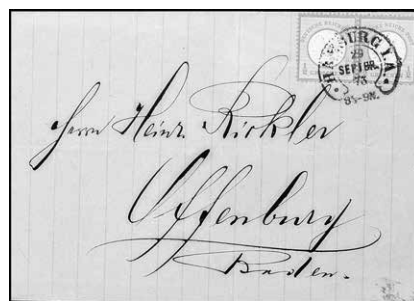 HAMBURG I.A.
29
SEPTBR.
73
8½-9N.
Herrn Heinr. Rickler
Offenburg
Baden.